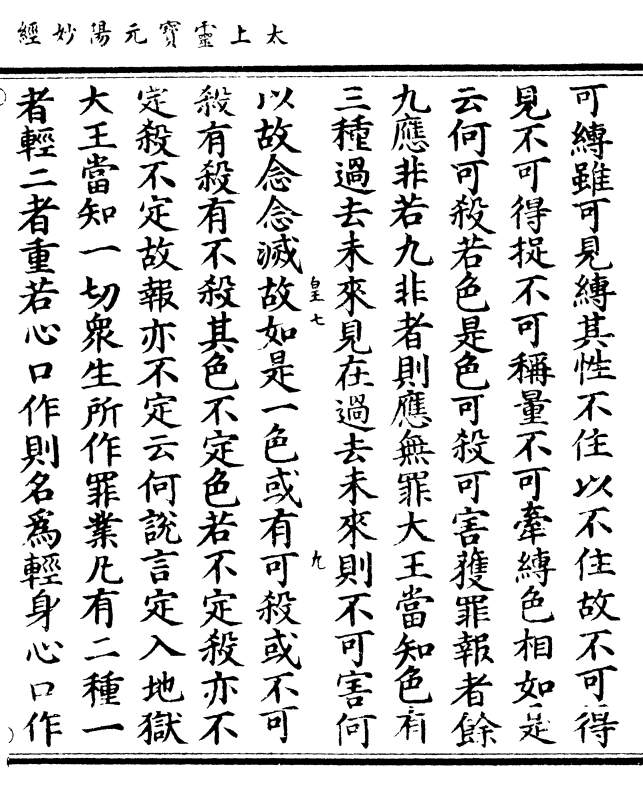 太上靈寶元陽妙經
可縛雖可見縛其性不住以不住故不可得
見不可得捉不可稱量不可牽縛色相如是
云何可殺若色是色可殺可害獲罪報者餘
九應非若九非者則應無罪大王當知色有
三種過去未來見在過去未來則不可害何
皇七
九
以故念念滅故如是一色或有可殺或不可
殺有殺有不殺其色不定色若不定殺亦不
定殺不定故報亦不定云何說言定入地獄
大王當知一切衆生所作罪業凡有二種一
者輕二者重若心口作則名爲輕身心口作